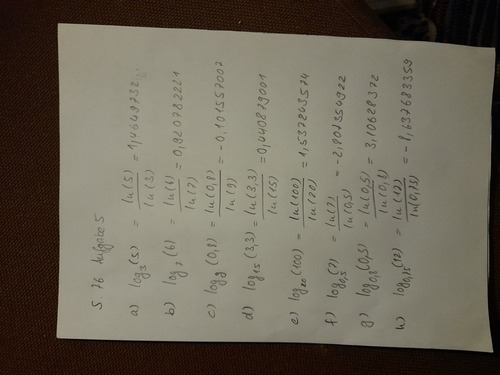 S. 76 Aufgabe 5
a) log₃(5) = ln(5)/ln(3) = 1,46497352..
b) log₇(6) = ln(6)/ln(7) = 0,920782221
c) log₉(0,8) = ln(0,8)/ln(9) = -0,101557007
d) log₁₅(3,3) = ln(3,3)/ln(15) = 0,440879001
e) log₂₀(100) = ln(100)/ln(20) = 1,537243574
f) log₀,₅(7) = ln(7)/ln(0,5) = -2,807354922
g) log₀,₈(0,5) = ln(0,5)/ln(0,8) = 3,10628372
h) log₀,₁₅(12) = ln(12)/ln(0,15) =